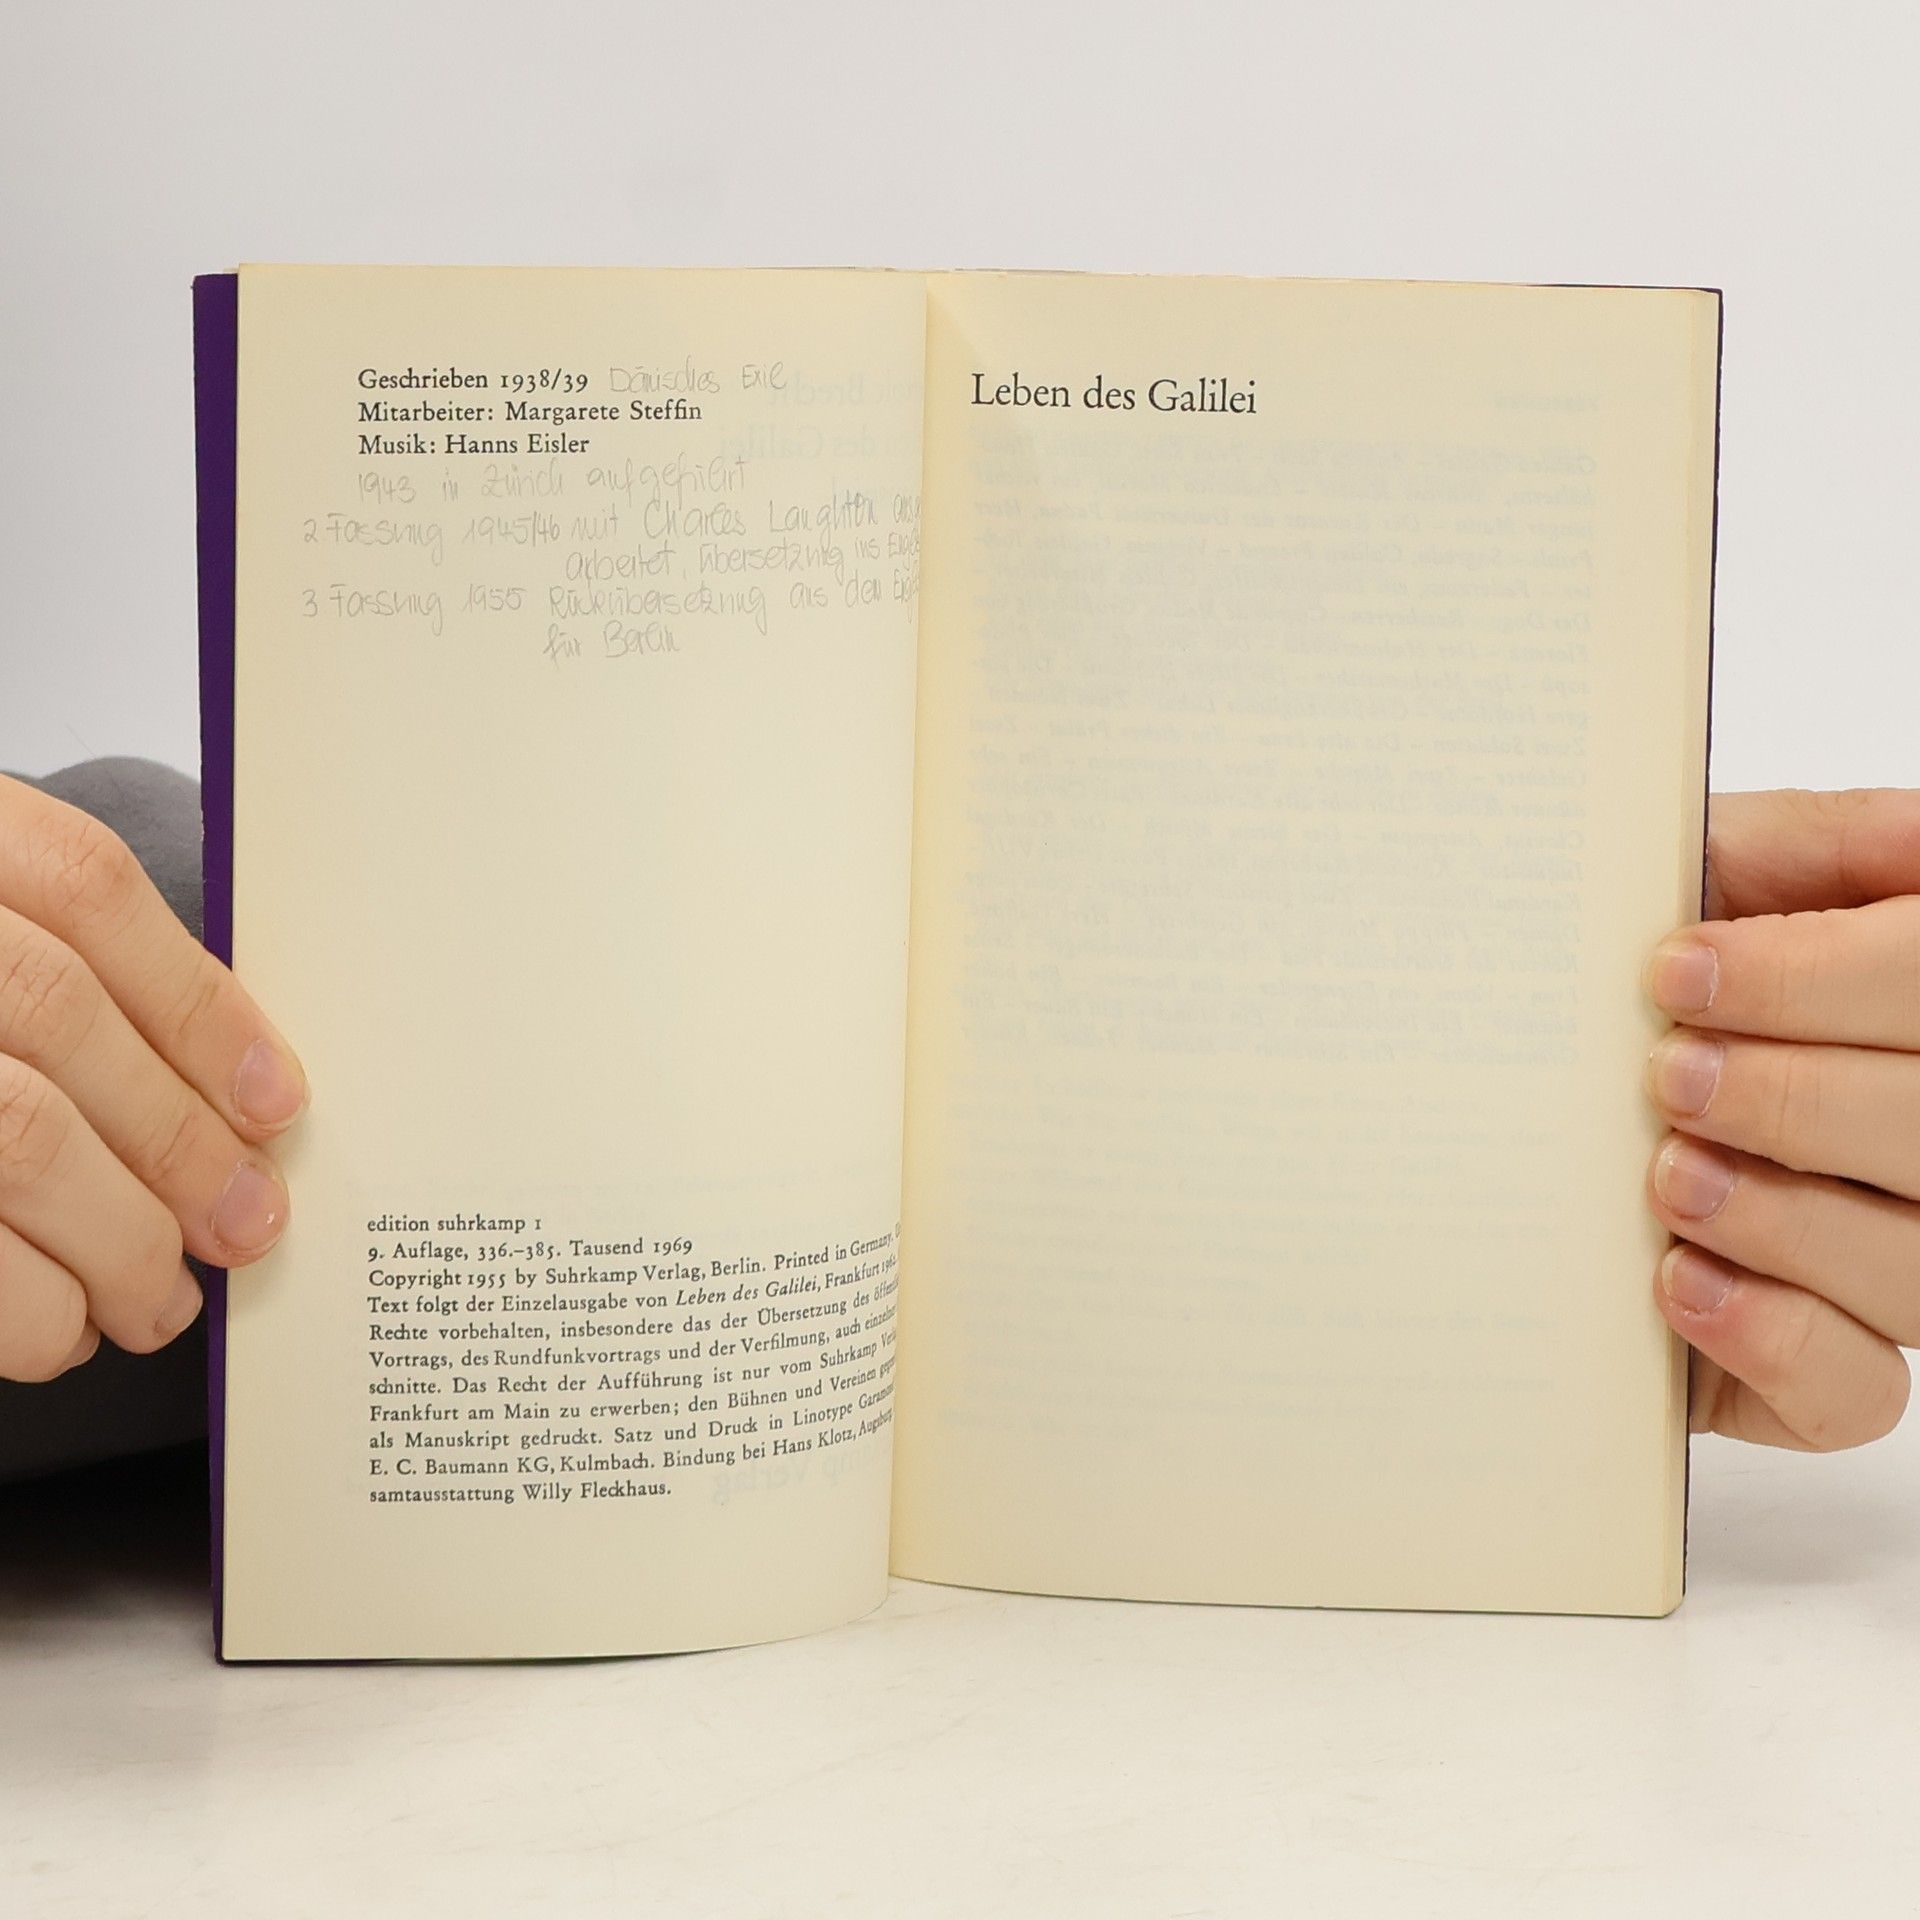 Geschrieben 1938/39 Dänisches Exil
Mitarbeiter: Margarete Steffin
Musik: Hanns Eisler
1943 in Zürich aufgeführt
2 Fassung 1945/46 mit Charles Laughton
arbeitet, Übersetzung ins
3 Fassung 1955 Rückübersetzung aus dem
für Berlin
edition suhrkamp 1
9. Auflage, 336.–385. Tausend 1969
Copyright 1955 by Suhrkamp Verlag, Berlin. Printed in Germany.
Text folgt der Einzelausgabe von Leben des Galilei, Frankfurt
Rechte vorbehalten, insbesondere das der Übersetzung des
Vortrags, des Rundfunkvortrags und der Verfilmung, auch
schnitte. Das Recht der Aufführung ist nur vom Suhrkamp
Frankfurt am Main zu erwerben; den Bühnen und Vereinen
als Manuskript gedruckt. Satz und Druck in Linotype
E. C. Baumann KG, Kulmbach. Bindung bei Hans Klotz, Augsburg.
samtausstattung Willy Fleckhaus.
Leben des Galilei